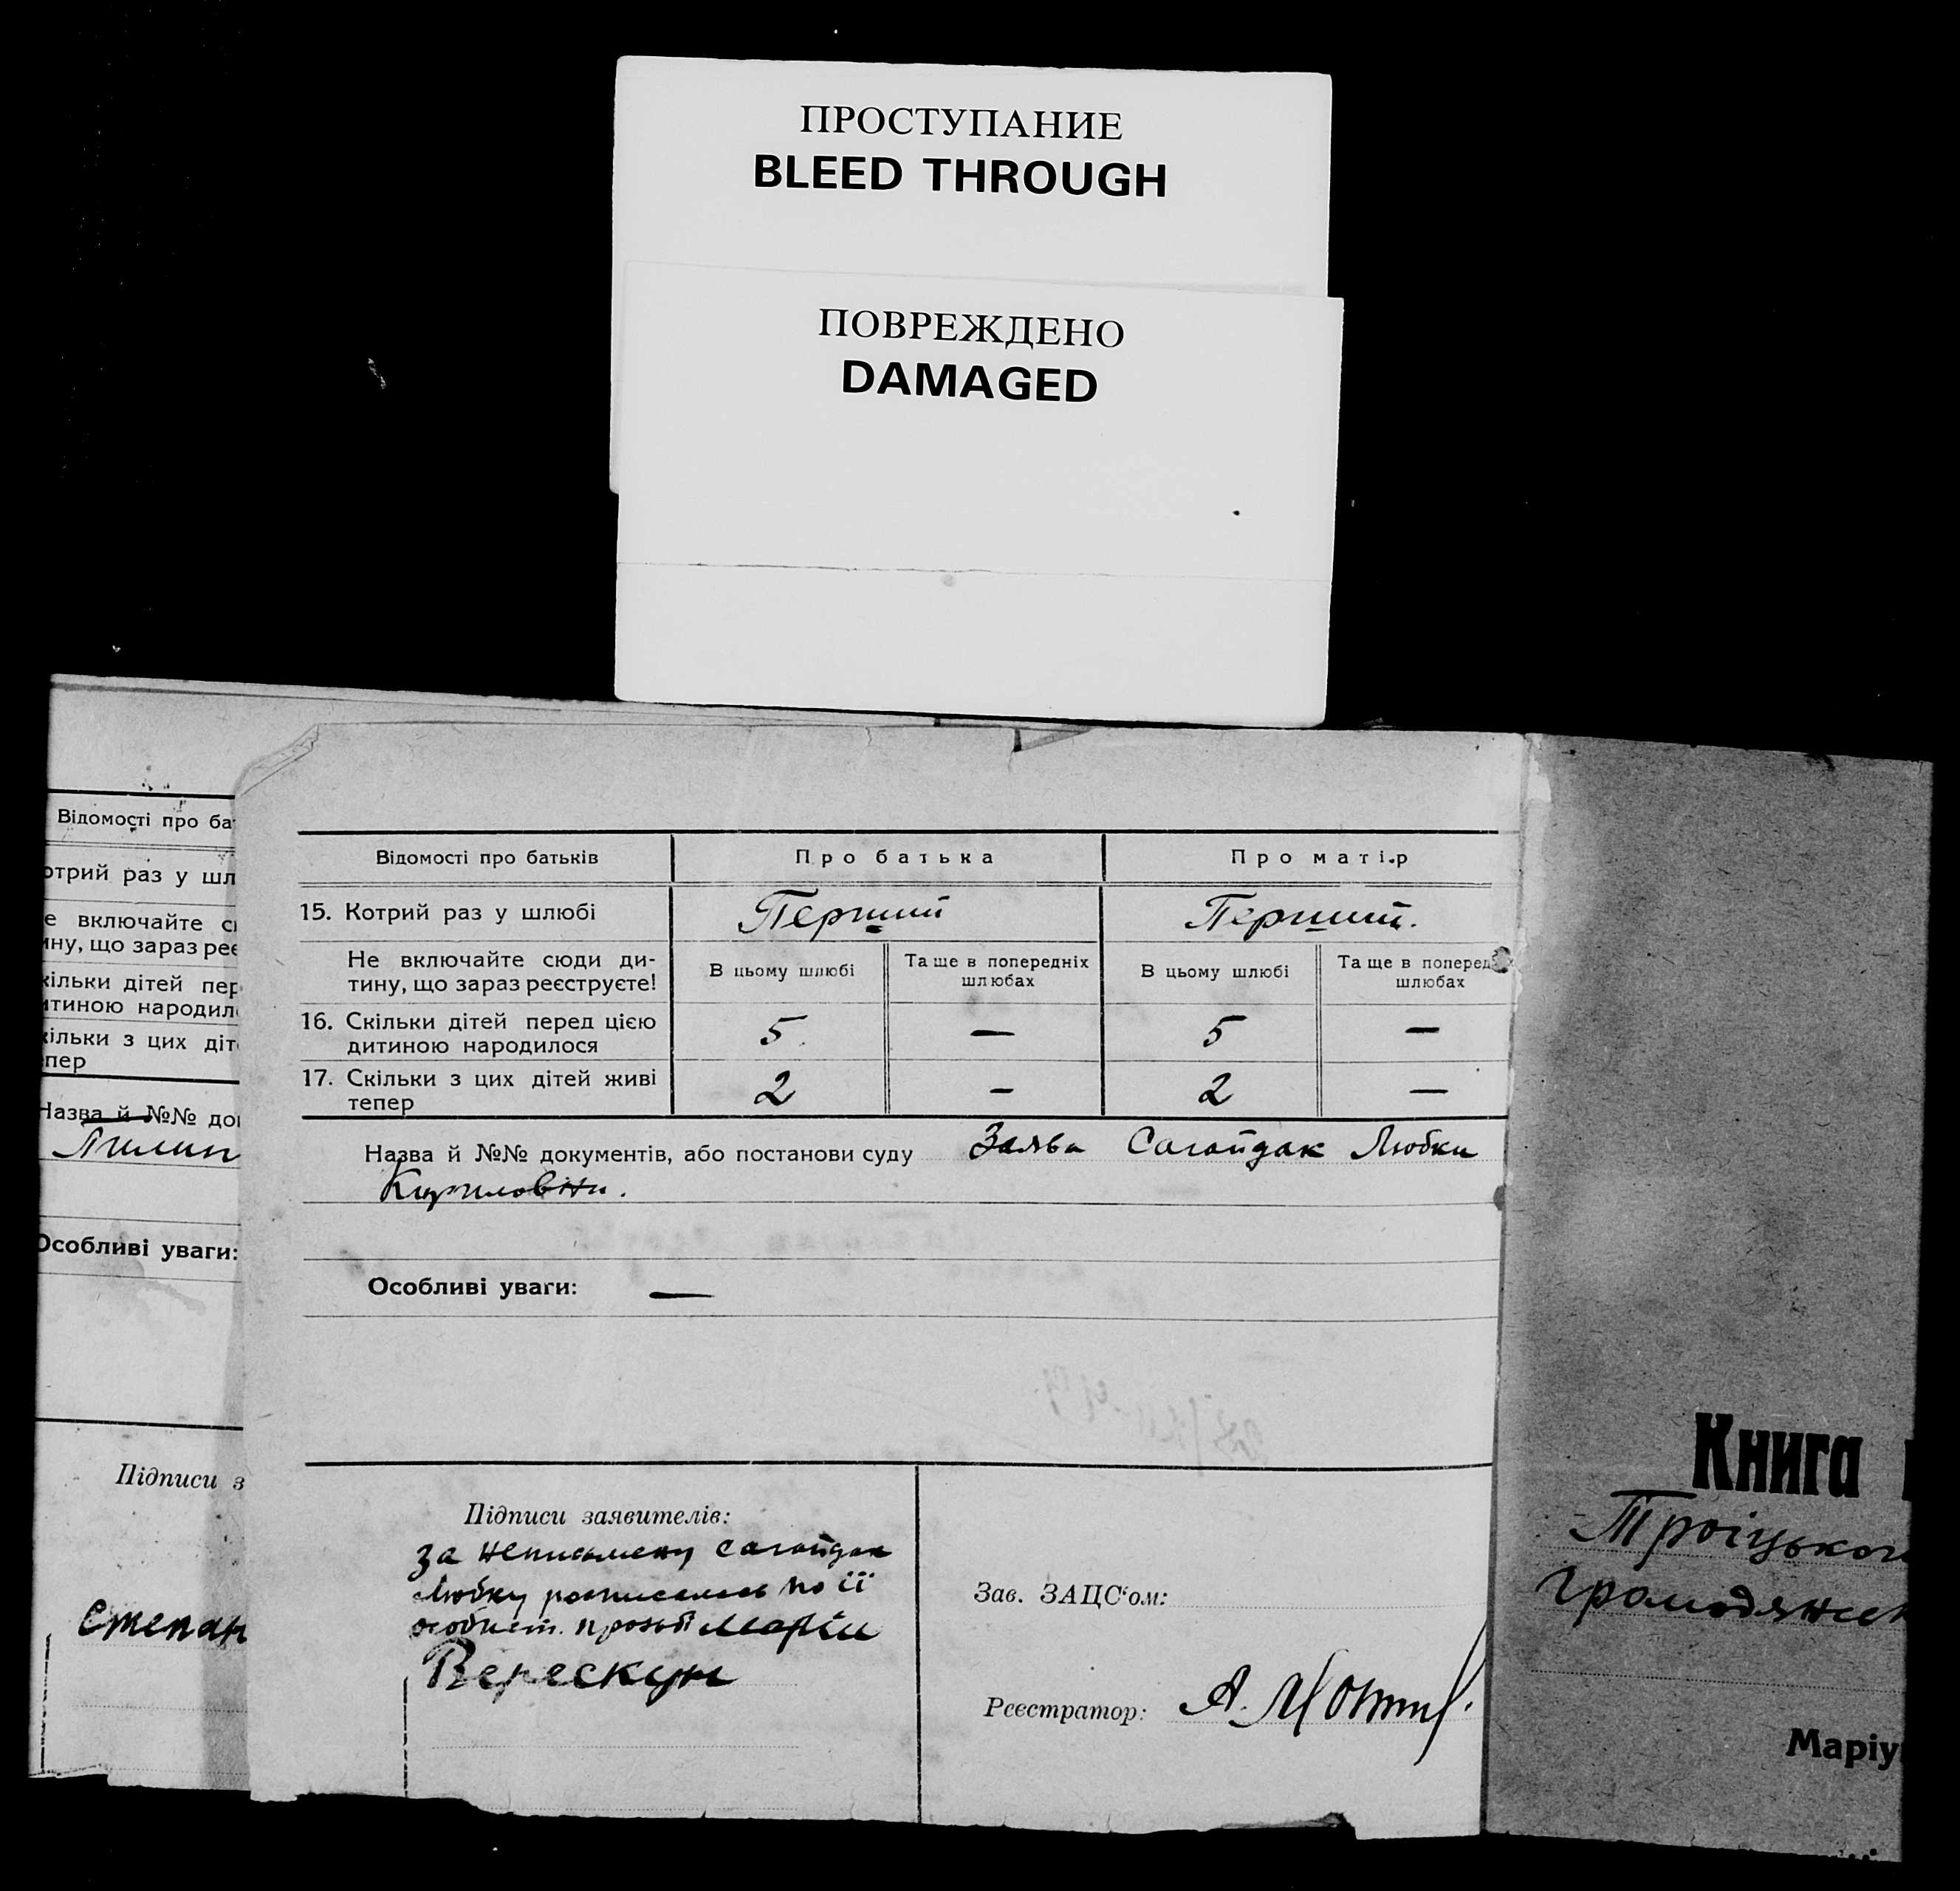 ПРОСТУПАНИЕ
BLEED THROUGH
ПОВРЕЖДЕНО
DAMAGED
Відомості про ба
отрий раз у шл
е включайте с
ину, що зараз рее
кільки дітей пер
итиною народил
кільки з цих діт
пер
Назва й №№ до
Пилип
Особливі уваги:
Підписи з
Степан
Відомості про батьків Про батька Про матір
15. Котрий раз у шлюбі Перший Перший.
Не включайте сюди ди- В цьому шлюбі Та ще в попередніх В цьому шлюбі Та ще в поперед х
тину, що зараз реєструєте! шлюбах шлюбах
16. Скільки дітей перед цією 5 — 5 —
дитиною народилося
17. Скільки з цих дітей живі 2 — 2 —
тепер
Назва й №№ документів, або постанови суду Заява Сагайдак Любки
Кириловни.
Особливі уваги: —
Підписи заявителів:
за неписьмену Сагайдак
Любку росписалась по її
особист. прозьбі Марія
Верескун
Зав. ЗАЦС‘ом:
Реєстратор: А.
Книга
Троіцьког
Громодянск
Маріу